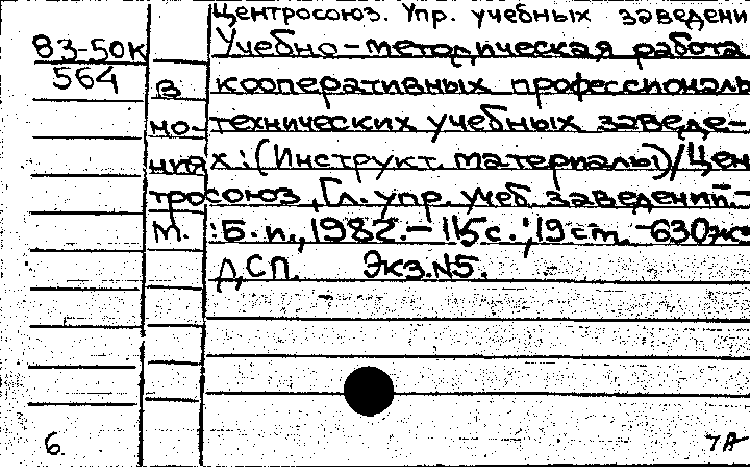 Центросоюз. Упр. учебных заведени
83-50к Учебно-методическая работа
564 в кооперативных профессиональ
но-технических учебных заведе-
ниях: (Инструкт. материалы)/Цен
тросоюз, Гл. упр. учеб. заведений.-
М.: Б. и., 1982.- 115с.; 19 cm. -630экз
ДСП. Экз.N5.
6